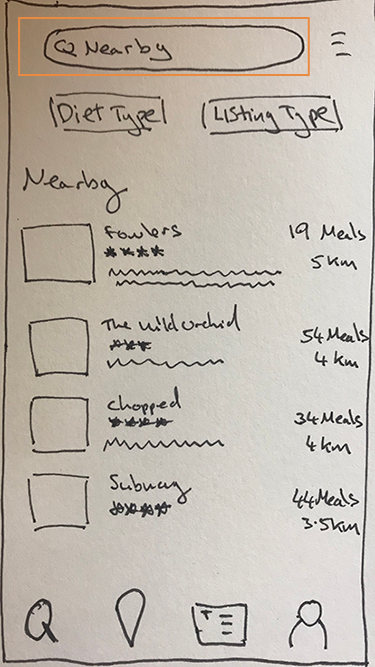 Nearby
Diet Type
Listing Type
Nearby
Fowlers
19 Meals
5km
The wild orchid
54 Meals
4 km
Chopped
34 Meals
4 km
Subway
44 Meals
3.5km